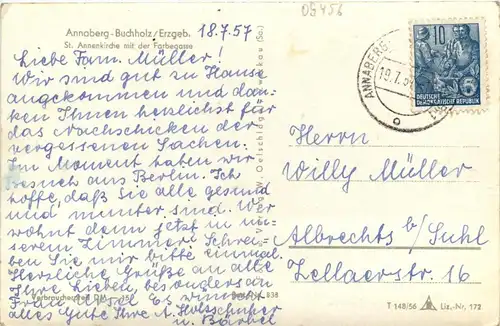 Annaberg-Buchholz/Erzgeb. 18.7.57
St. Annenkirche mit der Farbegasse
Liebe Fam. Müller!
Wir sind gut zu Hause
angekommen und dan-
ken Ihnen herzlichst für
das Nachschicken der
vergessenen Sachen.
Im Moment haben wir
Besuch aus Berlin. Ich
hoffe, daß Sie alle gesund
und munter sind. Wer
wohnt denn jetzt in un-
serem Zimmer? Schrei-
ben Sie mir bitte einmal.
Herzliche Grüße an alle
Ihre Lieben, besonders an
Frau
alles Gute Ihre A. Holzschuher
u. Bärbel
Verbraucherpreis DM
838
Verlag W. Oelschläge
(Sa.)
09456
ANNABERG
10
DEUTSCHE
DEMOKRATISCHE REPUBLIK
Herrn
Willy Müller
Albrechts b/Suhl
Zellaerstr. 16
T 148/56
Liz.-Nr. 172